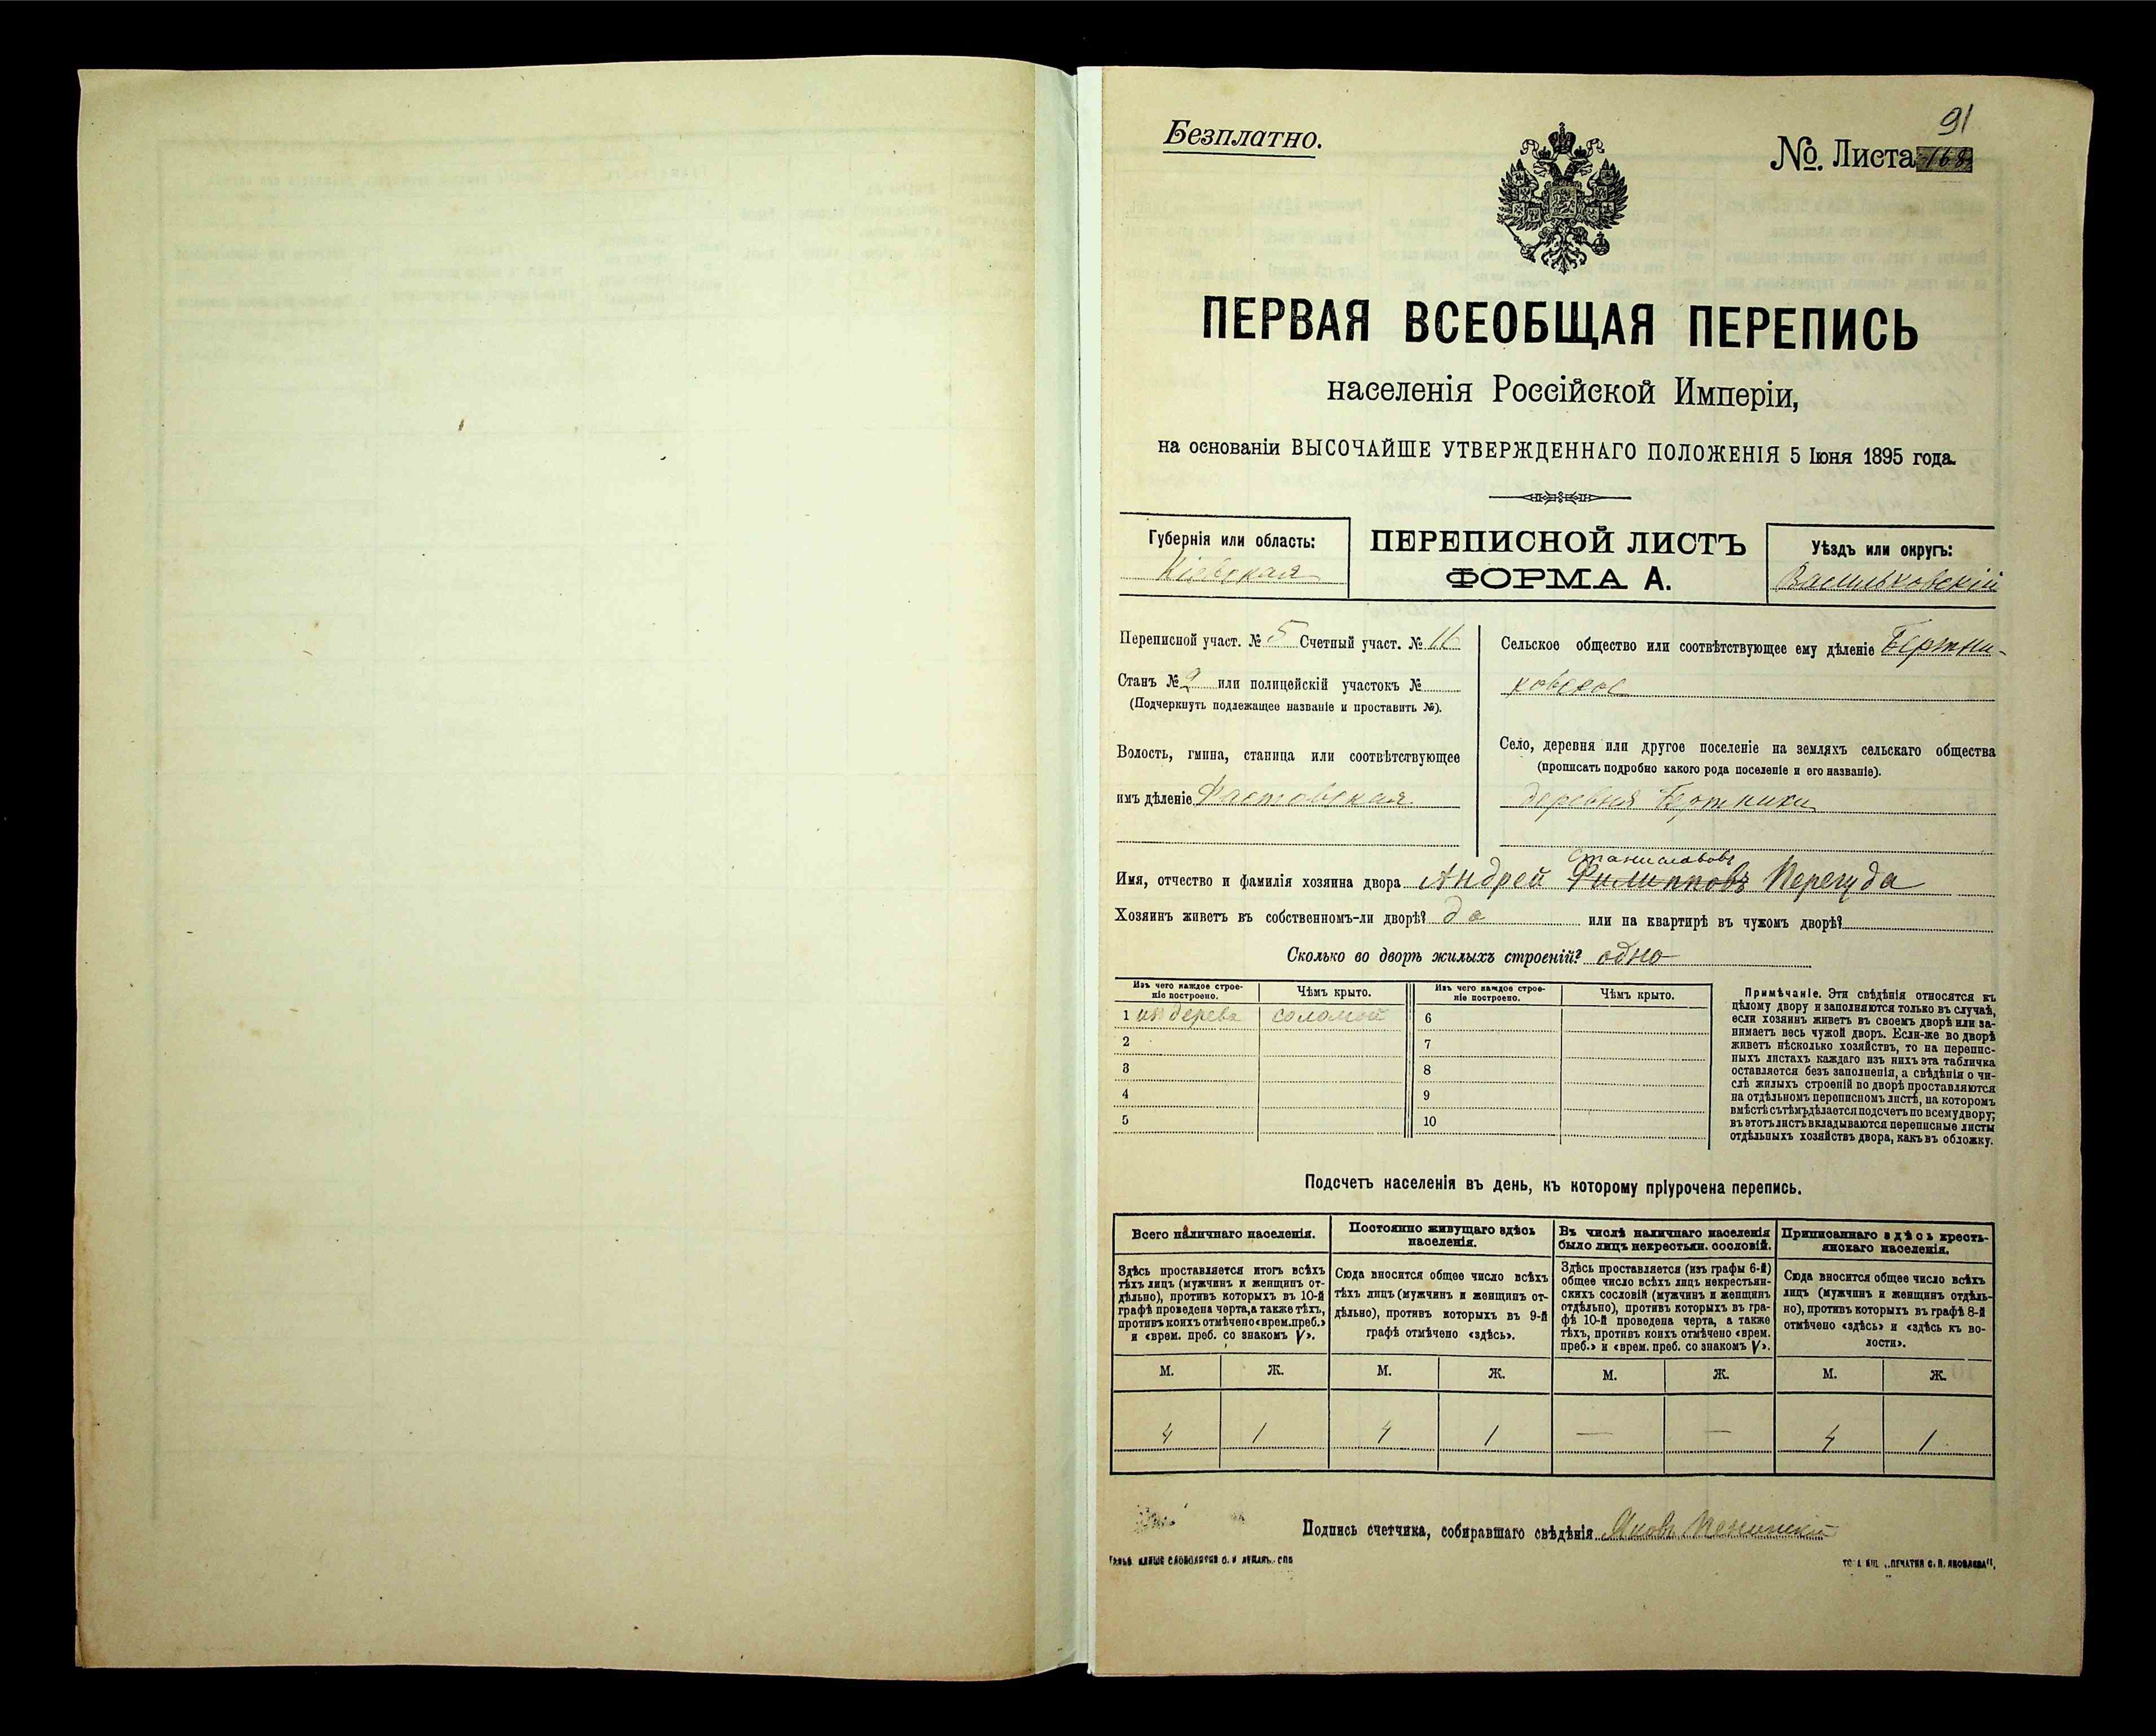 91
Безплатно.
№. Листа 168
ПЕРВАЯ ВСЕОБЩАЯ ПЕРЕПИСЬ
населенія Россійской Имперіи,
на основаніи ВЫСОЧАЙШЕ УТВЕРЖДЕННАГО ПОЛОЖЕНІЯ 5 Іюня 1895 года.
Губернія или область:
Кіевская
ПЕРЕПИСНОЙ ЛИСТЪ
ФОРМА А.
Уѣздъ или округъ:
Васильковскій
Переписной участ. № 5 Счетный участ. № 11
Станъ № 2 или полицейскій участокъ №
(Подчеркнуть подлежащее названіе и проставить №).
Волость, гмина, станица или соотвѣтствующее
имъ дѣленіе Фастовская
Сельское общество или соотвѣтствующее ему дѣленіе Бертни-
ковское
Село, деревня или другое поселеніе на земляхъ сельскаго общества
(прописать подробно какого рода поселеніе и его названіе).
деревня Бертники
Станиславовъ
Имя, отчество и фамилія хозяина двора Андрей Филипповъ Перегуда
Хозяинъ живетъ въ собственномъ-ли дворѣ? да или на квартирѣ въ чужомъ дворѣ?
Сколько во дворѣ жилыхъ строеній? одно
Изъ чего каждое строе-
ніе построено.
Чѣмъ крыто.
Изъ чего каждое строе-
ніе построено.
Чѣмъ крыто.
1 изъ дерева соломой 6
2 7
3 8
4 9
5 10
Примѣчаніе. Эти свѣдѣнія относятся къ
цѣлому двору и заполняются только въ случаѣ,
если хозяинъ живетъ въ своемъ дворѣ или за-
нимаетъ весь чужой дворъ. Если-же во дворѣ
живетъ нѣсколько хозяйствъ, то на перепис-
ныхъ листахъ каждаго изъ нихъ эта табличка
оставляется безъ заполненія, а свѣдѣнія о чи-
слѣ жилыхъ строеній во дворѣ проставляются
на отдѣльномъ переписномъ листѣ, на которомъ
вмѣстѣ съ тѣмъ дѣлается подсчетъ по всему двору;
въ этотъ листъ вкладываются переписные листы
отдѣльныхъ хозяйствъ двора, какъ въ обложку.
Подсчетъ населенія въ день, къ которому пріурочена перепись.
Всего наличнаго населенія.
Здѣсь проставляется итогъ всѣхъ
тѣхъ лицъ (мужчинъ и женщинъ от-
дѣльно), противъ которыхъ въ 10-й
графѣ проведена черта, а также тѣхъ,
противъ коихъ отмѣчено «врем. преб.»
и «врем. преб. со знакомъ V».
Постоянно живущаго здѣсь
населенія.
Сюда вносится общее число всѣхъ
тѣхъ лицъ (мужчинъ и женщинъ от-
дѣльно), противъ которыхъ въ 9-й
графѣ отмѣчено «здѣсь».
Въ числѣ наличнаго населенія
было лицъ некрестьян. сословій.
Здѣсь проставляется (изъ графы 6-й)
общее число всѣхъ лицъ некрестьян-
скихъ сословій (мужчинъ и женщинъ
отдѣльно), противъ которыхъ въ гра-
фѣ 10-й проведена черта, а также
тѣхъ, противъ коихъ отмѣчено «врем.
преб.» и «врем. преб. со знакомъ V».
Приписаннаго здѣсь кресть-
янскаго населенія.
Сюда вносится общее число всѣхъ
лицъ (мужчинъ и женщинъ отдѣль-
но), противъ которыхъ въ графѣ 8-й
отмѣчено «здѣсь» и «здѣсь къ во-
лости».
М. Ж. М. Ж. М. Ж. М. Ж.
4 1 4 1 — — 4 1
Подпись счетчика, собиравшаго свѣдѣнія Яковъ